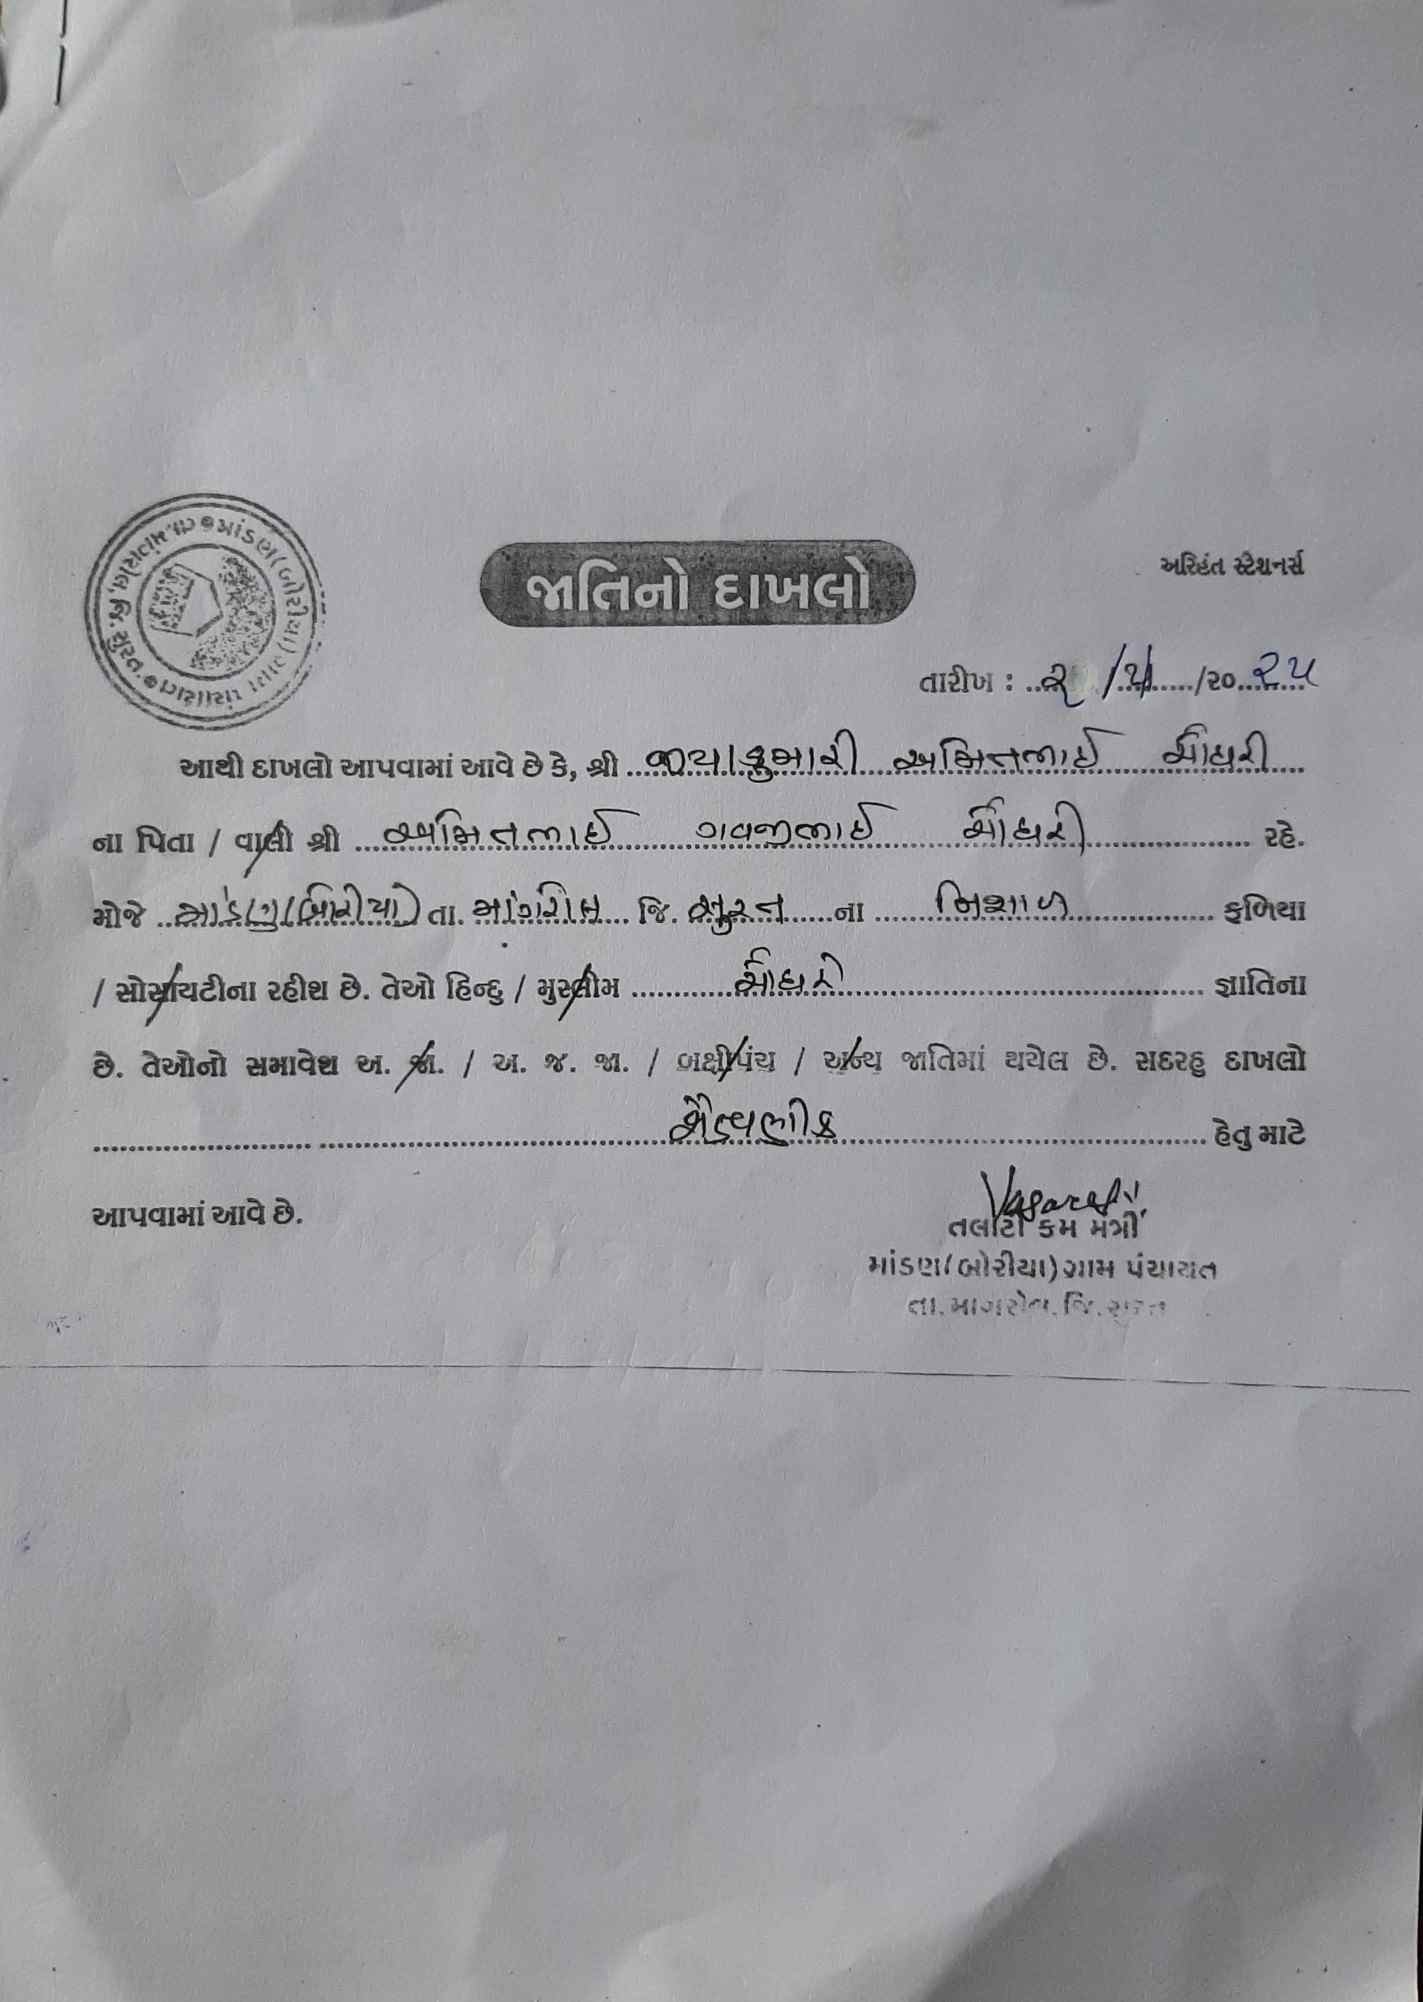 માંડણ(બોરીયા) ગ્રામ પંચાયત તા. માંગરોળ, જી. સુરત
અરિહંત સ્ટેશનર્સ
જાતિનો દાખલો
તારીખ : ૨ /૫/૨૦૨૫
આથી દાખલો આપવામાં આવે છે કે, શ્રી જયાકુમારી અમિતભાઈ ચૌધરી
ના પિતા / વાલી શ્રી અમિતભાઈ ગવજીભાઈ ચૌધરી રહે.
મોજે માંડણ(બોરીયા) તા. માંગરોળ જિ. સુરત ના નિશાળ ફળિયા
/ સોસાયટીના રહીશ છે. તેઓ હિન્દુ / મુસ્લીમ ચૌધરી જ્ઞાતિના
છે. તેઓનો સમાવેશ અ. જા. / અ. જ. જા. / બક્ષીપંચ / અન્ય જાતિમાં થયેલ છે. સદરહુ દાખલો
શૈક્ષણીક હેતુ માટે
આપવામાં આવે છે.
તલાટી કમ મંત્રી
માંડણ(બોરીયા)ગ્રામ પંચાયત
તા.માંગરોળ.જિ.સુરત